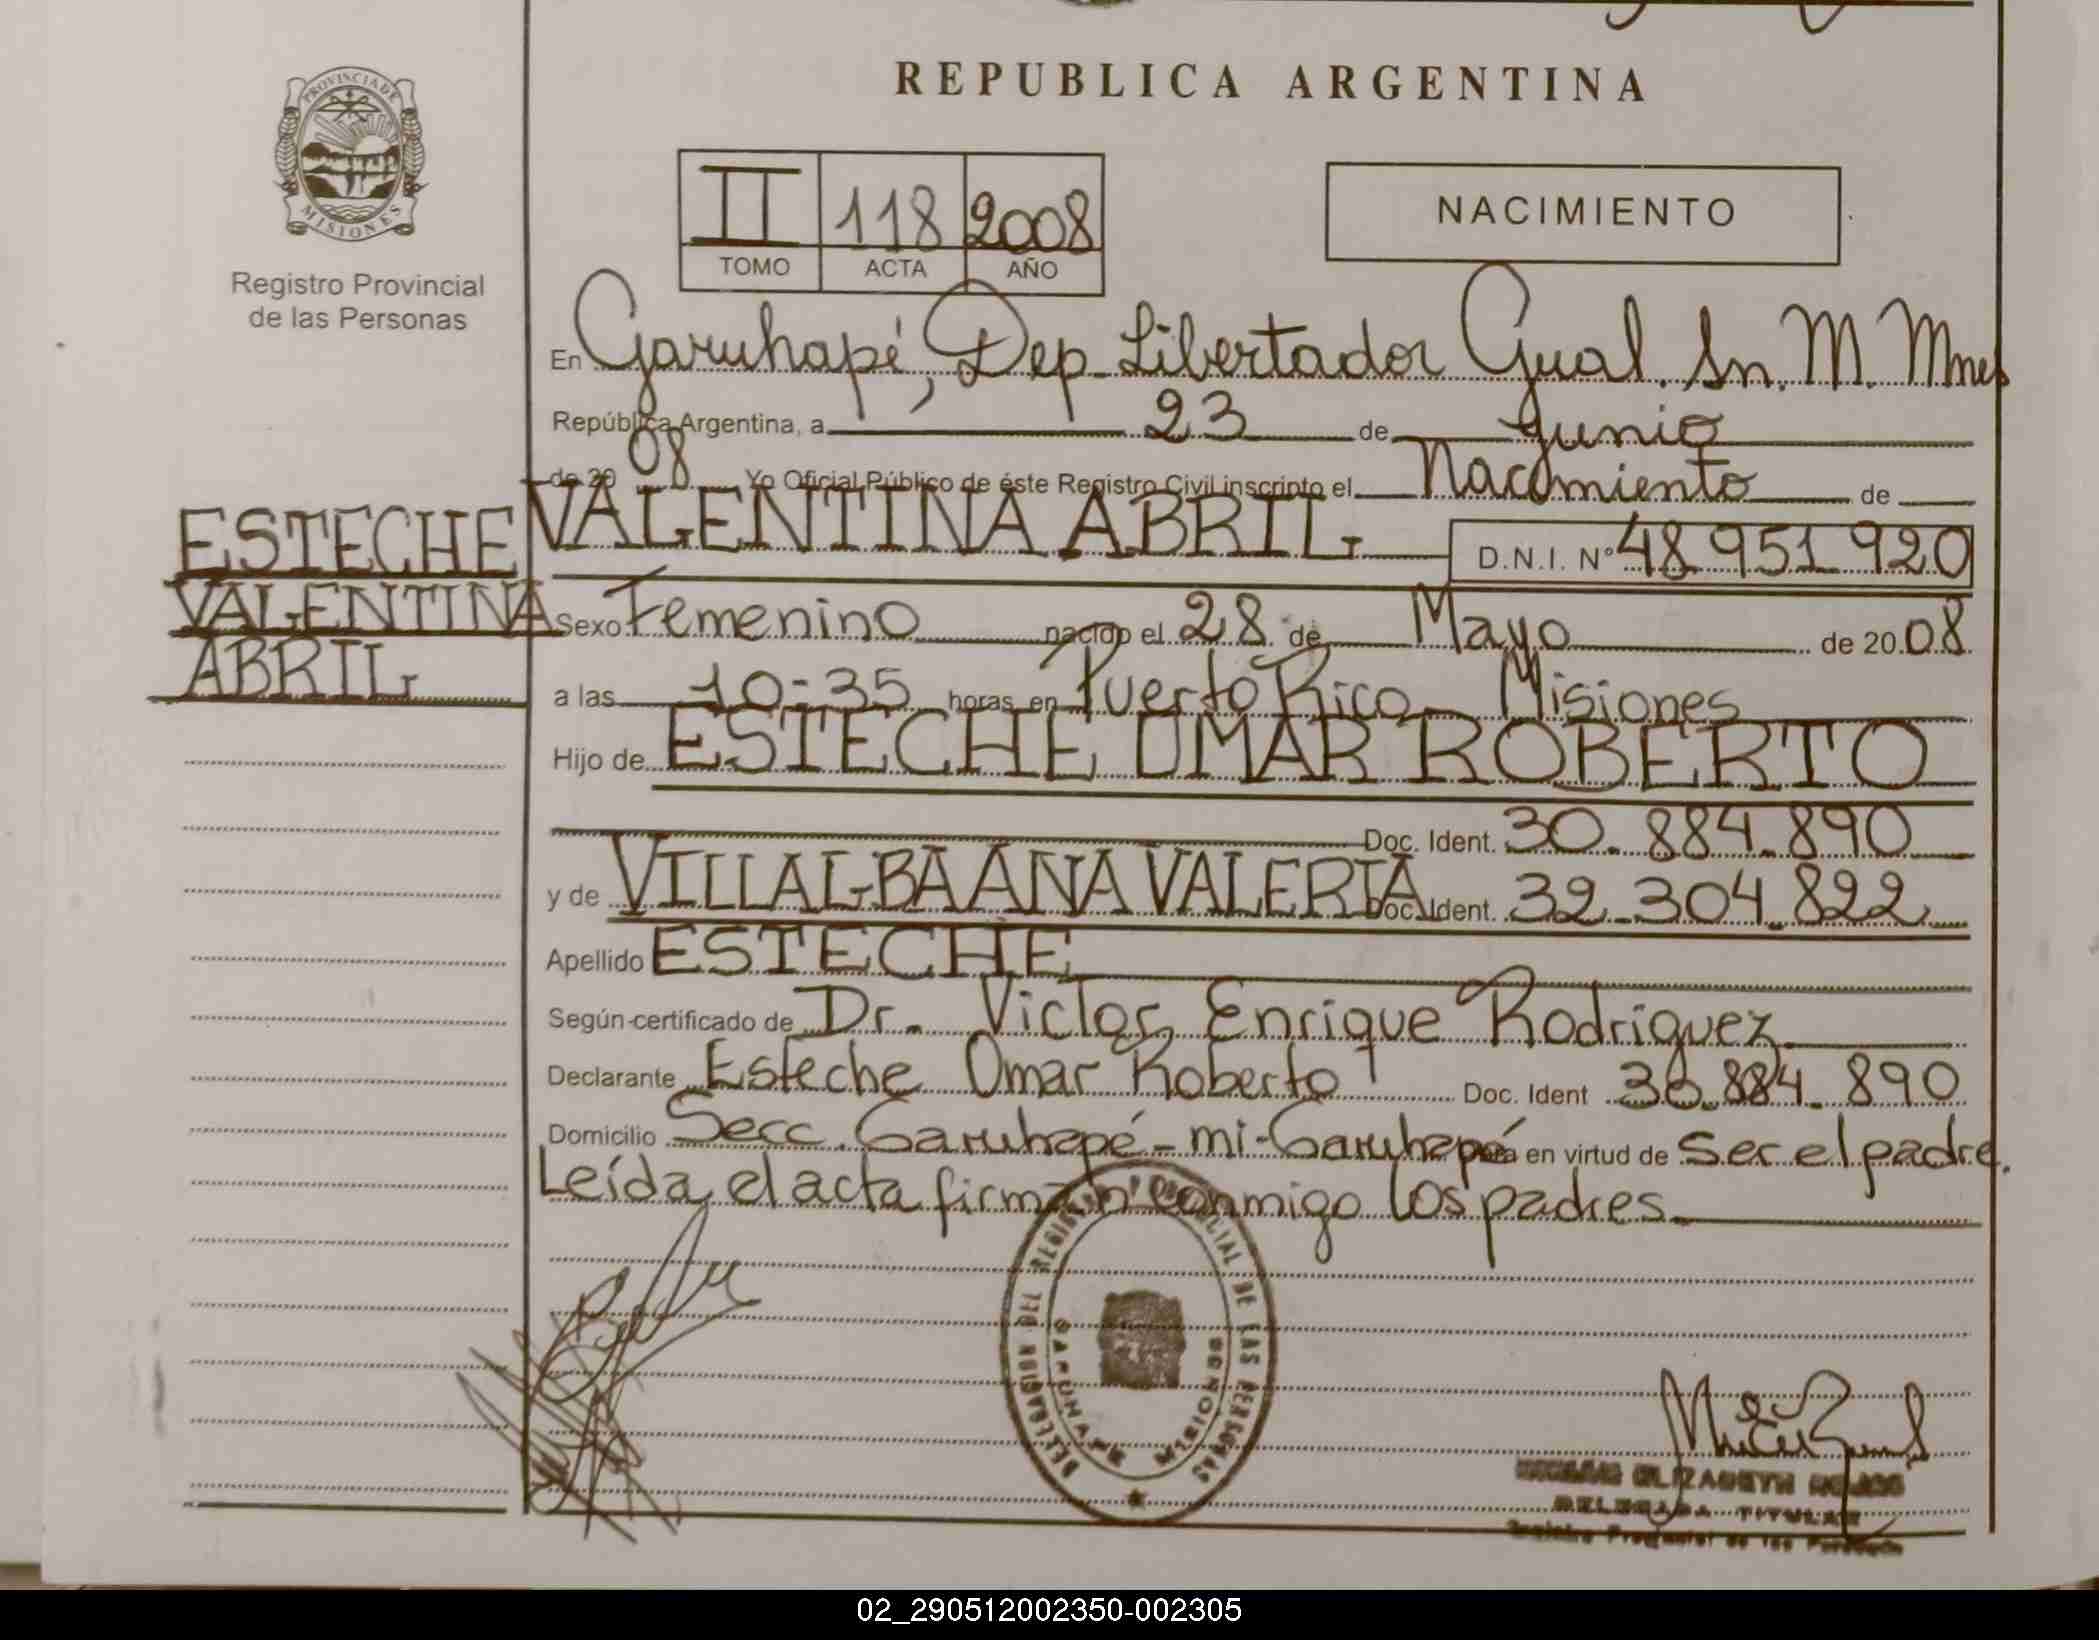 REPUBLICA ARGENTINA
PROVINCIA DE
MISIONES
Registro Provincial
de las Personas
II 118 2008
TOMO ACTA AÑO
NACIMIENTO
En Garuhapé, Dep. Libertador Gual. Sn. M. Mnes
República Argentina, a 23 de Junio
de 20 08 Yo Oficial Público de éste Registro Civil inscripto el Nacimiento de
ESTECHE
VALENTINA
ABRIL
VALENTINA ABRIL D.N.I. Nº 48 951 920
Sexo Femenino nacido el 28 de Mayo de 20 08
a las 10-35 horas en Puerto Rico Misiones
Hijo de ESTECHE OMAR ROBERTO
Doc. Ident. 30.884.890
y de VILLALBA ANA VALERIA Doc. Ident. 32.304.822
Apellido ESTECHE
Según certificado de Dr. Victor Enrique Rodriguez
Declarante Esteche Omar Roberto Doc. Ident 30.884.890
Domicilio Secc. Garuhapé-mi-Garuhapé en virtud de Ser el padre.
Leída el acta firman conmigo los padres
DELEGACION DEL REGISTRO PROVINCIAL DE LAS PERSONAS
GARUHAPE MISIONES
ELIZABETH
DELEGADA TITULAR
Registro Provincial de las Personas
02_290512002350-002305